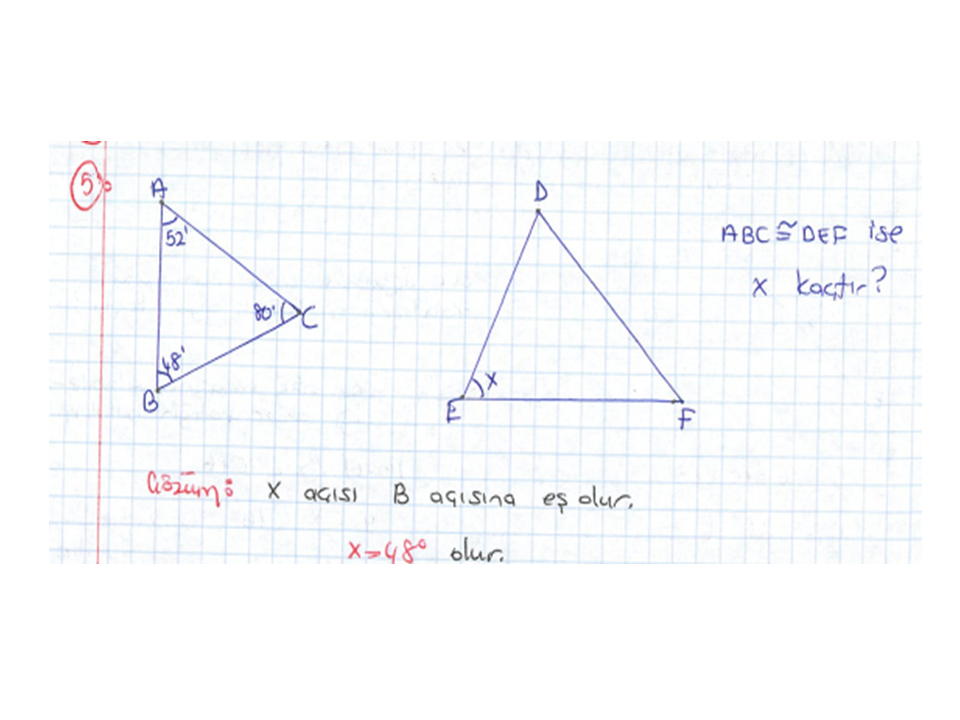 5:
A
52'
80'
C
48'
B
D
x
E
F
ABC ≅ DEF ise
x kaçtır?
Çözüm: X açısı B açısına eş olur.
x=48° olur.